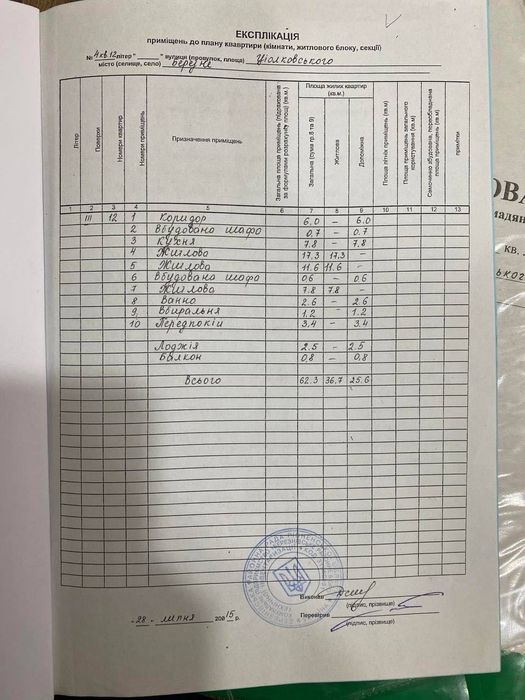 ЕКСПЛІКАЦІЯ
приміщень до плану квартири (кімнати, житлового блоку, секції)
№ 4 кв. 12 літер " " вулиця (провулок, площа) Ціолковського
місто (селище, село)
Літер
Поверхи
Номери квартир
Номери приміщень
Призначення приміщень
Загальна площа приміщень (підрахована за формулами розрахунку площ) (кв.м.)
Площа жилих квартир (кв.м.)
Загальна (сума гр.8 та 9)
Житлова
Допоміжна
Площа літніх приміщень (кв.м)
Площа приміщень загального користування (кв.м)
Самочинно збудована, переобладнана площа приміщень (кв.м)
примітки
1 2 3 4 5 6 7 8 9 10 11 12 13
III 12 1 Коридор 6.0 – 6.0
2 Вбудована шафа 0,7 – 0.7
3 Кухня 7.8 – 7.8
4 Житлова 17.3 17,3 –
5 Житлова 11.6 11.6 –
6 Вбудована шафа 0.6 – 0.6
7 Житлова 7.8 7.8 –
8 Ванна 2.6 – 2.6
9. Вбиральня 1.2 – 1.2
10 Передпокій 3,4 – 3.4
Лоджія 2.5 – 2.5
Балкон 0,8 – 0,8
Всього 62.3 36.7 25.6
Виконав
(підпис, прізвище)
-28- липня 20015 р.
Перевірив
(підпис, прізвище)
ОВА
мадян
кв.
ького